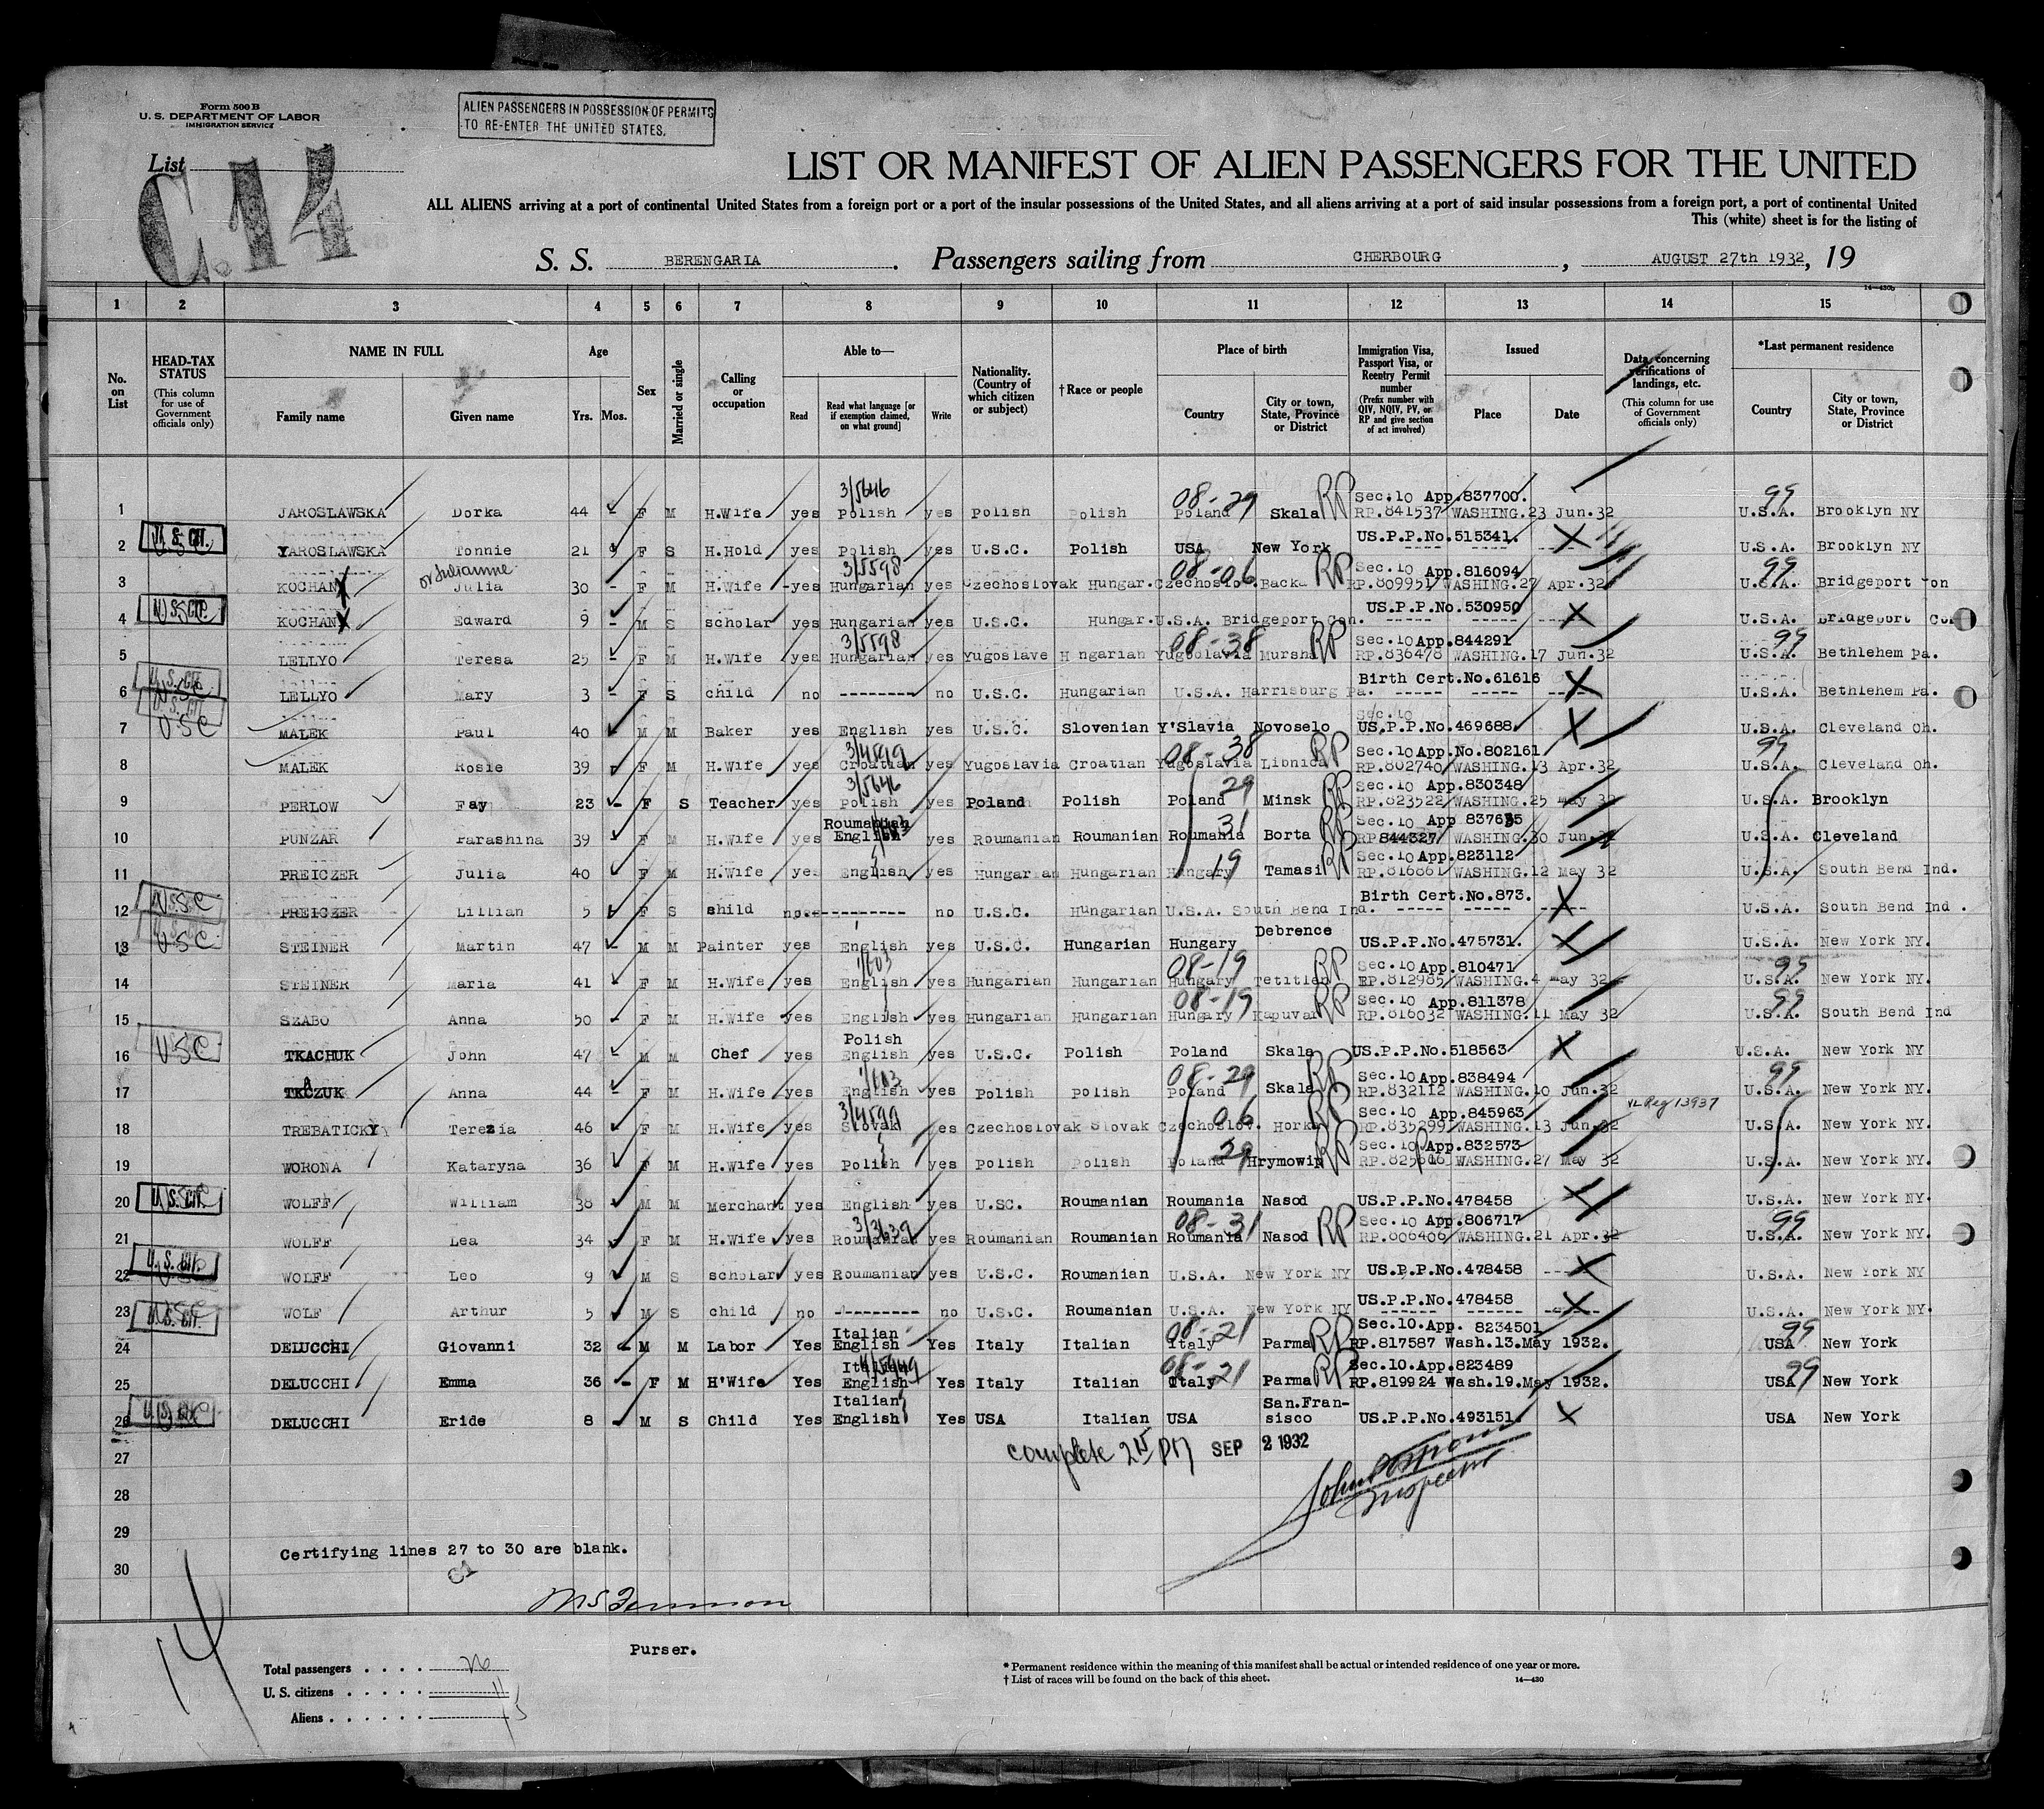 Form 500 B
U. S. DEPARTMENT OF LABOR
IMMIGRATION SERVICE
ALIEN PASSENGERS IN POSSESSION OF PERMITS
TO RE-ENTER THE UNITED STATES.
List
C.14
LIST OR MANIFEST OF ALIEN PASSENGERS FOR THE UNITED
ALL ALIENS arriving at a port of continental United States from a foreign port or a port of the insular possessions of the United States, and all aliens arriving at a port of said insular possessions from a foreign port, a port of continental United
This (white) sheet is for the listing of
S. S. BERENGARIA. Passengers sailing from CHERBOURG, AUGUST 27th 1932, 19
14-430b
1 2 3 4 5 6 7 8 9 10 11 12 13 14 15
No. on List
HEAD-TAX STATUS (This column for use of Government officials only)
NAME IN FULL Family name Given name
Age Yrs. Mos.
Sex
Married or single
Calling or occupation
Able to— Read Read what language [or if exemption claimed, on what ground] Write
Nationality. (Country of which citizen or subject)
† Race or people
Place of birth Country City or town, State, Province or District
Immigration Visa, Passport Visa, or Reentry Permit number (Prefix number with QIV, NQIV, PV, or RP and give section of act involved)
Issued Place Date
Data concerning verifications of landings, etc. (This column for use of Government officials only)
*Last permanent residence Country City or town, State, Province or District
3/5646 08-29 RP Sec.10 App.837700. 99
1 JAROSLAWSKA Dorka 44 - F M H.Wife yes Polish yes Polish Polish Poland Skala RP.841537 WASHING.23 Jun.32 U.S.A. Brooklyn NY
U.S.CIT. US.P.P.No.515341.
2 YAROSLAWSKA Tonnie 21 F S H.Hold yes Polish yes U.S.C. Polish USA New York ---- ----- U.S.A. Brooklyn NY
or Julianne 3/5598 08-06 RP Sec.10 App.816094 99
3 KOCHAN Julia 30 - F M H.Wife yes Hungarian yes Czechoslovak Hungar. Czechoslo. Backa RP.809951 WASHING.27 Apr.32 U.S.A. Bridgeport Con
U.S.CIT. US.P.P.No.530950
4 KOCHAN Edward 9 - M S scholar yes Hungarian yes U.S.C. Hungar. U.S.A. Bridgeport Con. ----- ----- U.S.A. Bridgeport Con
3/5598 08-38 RP Sec.10 App.844291 99
5 LELLYO Teresa 25 - F M H.Wife yes Hungarian yes Yugoslave Hungarian Yugoslavia Mursha RP.836478 WASHING.17 Jun.32 U.S.A. Bethlehem Pa.
U.S.CIT. Birth Cert.No.61616
6 LELLYO Mary 3 - F S child no -------- no U.S.C. Hungarian U.S.A. Harrisburg Pa. ----- ----- U.S.A. Bethlehem Pa.
U.S.CIT. USC Sec.10
7 MALEK Paul 40 M M Baker yes English yes U.S.C. Slovenian Y'Slavia Novoselo US.P.P.No.469688. U.S.A. Cleveland Oh.
3/4599 08-38 RP Sec.10 App.No.802161 99
8 MALEK Rosie 39 - F M H.Wife yes Croatian yes Yugoslavia Croatian Yugoslavia Libnica RP.802740 WASHING.13 Apr.32 U.S.A. Cleveland Oh.
3/5646 29 RP Sec.10 App.830348
9 PERLOW Fay 23 - F S Teacher yes Polish yes Poland Polish Poland Minsk RP.823522 WASHING.25 May 32 U.S.A. Brooklyn
Roumanian 31 RP Sec.10 App 837635
10 PUNZAR Parashina 39 - F M H.Wife yes English yes Roumanian Roumanian Roumania Borta RP 844327 WASHING.30 Jun. U.S.A. Cleveland
19 RP Sec.10 App.823112
11 PREICZER Julia 40 F M H.Wife yes English yes Hungarian Hungarian Hungary Tamasi RP.816861 WASHING.12 May 32 U.S.A. South Bend Ind.
USC Birth Cert.No.873.
12 PREICZER Lillian 5 F S child no ---------- no U.S.C. Hungarian U.S.A. South Bend Ind. ----- ----- U.S.A. South Bend Ind.
USC Debrence
13 STEINER Martin 47 - M M Painter yes English yes U.S.C. Hungarian Hungary US.P.P.No.475731. U.S.A. New York NY.
1/603 08-19 RP Sec.10 App.810471 99
14 STEINER Maria 41 F M H.Wife yes English yes Hungarian Hungarian Hungary Tetitlen RP.812985 WASHING.4 May 32 U.S.A. New York NY.
08-19 RP Sec.10 App.811378 99
15 SZABO Anna 50 - F M H.Wife yes English yes Hungarian Hungarian Hungary Kapuvar RP.816032 WASHING.11 May 32 U.S.A. South Bend Ind
USC Polish
16 TKACHUK John 47 M M Chef yes English yes U.S.C. Polish Poland Skala US.P.P.No.518563 U.S.A. New York NY
1/603 08-29 RP Sec.10 App.838494 99
17 TKACZUK Anna 44 - F M H.Wife yes English yes Polish Polish Poland Skala RP.832112 WASHING.10 Jun.32 U.S.A. New York NY.
3/4599 06 RP Sec.10 App.845963 VL Reg 13937
18 TREBATICKY Terezia 46 F M H.Wife yes Slovak yes Czechoslovak Slovak Czechoslov. Horka RP.835299 WASHING.13 Jun.32 U.S.A. New York NY.
29 RP Sec.10 App.832573
19 WORONA Kataryna 36 F M H.Wife yes Polish yes Polish Polish Poland Hrymowip WASHING.27 May 32 U.S.A. New York NY.
U.S.CIT.
20 WOLFF William 38 M M Merchant yes English yes U.SC. Roumanian Roumania Nasod US.P.P.No.478458 U.S.A. New York NY.
3/3639 08-31 RP Sec.10 App.806717 99
21 WOLFF Lea 34 - F M H.Wife yes Roumanian yes Roumanian Roumanian Roumania Nasod RP.806406 WASHING.21 Apr.32 U.S.A. New York NY.
U.S.CIT.
22 WOLFF Leo 9 M S scholar yes Roumanian yes U.S.C. Roumanian U.S.A. New York NY US.P.P.No.478458 ---- U.S.A. New York NY
US.P.P.No.478458
23 WOLF Arthur 5 M S child no --------- no U.S.C. Roumanian U.S.A. New York NY ------ ------ U.S.A. New York NY.
U.S.CIT. Italian 08-21 RP Sec.10.App. 8234501 99
24 DELUCCHI Giovanni 32 - M M Labor Yes English Yes Italy Italian Italy Parma RP.817587 Wash.13.May 1932. USA New York
Italian 08-21 RP Sec.10.App.823489 99
25 DELUCCHI Emma 36 - F M H'Wife Yes English Yes Italy Italian Italy Parma RP.819924 Wash.19.May 1932. USA New York
Italian San.Fran-
26 DELUCCHI Eride 8 - M S Child Yes English Yes USA Italian USA sisco US.P.P.No.493151. USA New York
27 complete SEP 2 1932
28 Inspector
29
Certifying lines 27 to 30 are blank.
30
Purser.
14
Total passengers . . . . 26
U. S. citizens . . . . . . 11
Aliens . . . . . . 15
* Permanent residence within the meaning of this manifest shall be actual or intended residence of one year or more.
† List of races will be found on the back of this sheet. 14—430